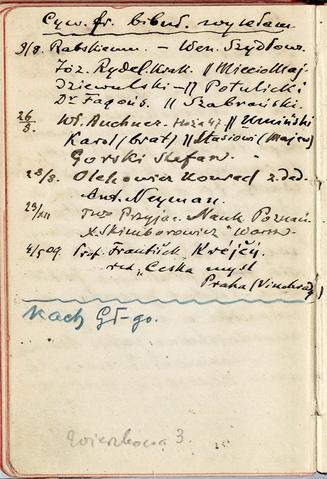 Cyw. fr. bibuł. wysłałam
9/8. Rabskiemu. — Wen. Szydłow.
Józ. Rydel. Krak. || Miecio Maj-
dziewulski — || Potulicki
Dr Fagois. || Szabrański.
26/8. Wł. Buchner. Hoża 47 || Umiński
Karol (brat) || Stasiowi (Majew)
Gorski Stefan.
28/8. Olchowicz Konrad z ded.
Ant. Neyman.
29/XII Tow Przyjac. Nauk. Poznań.
X. Skimborowicz Warsz.
4/5 09. Prof. František Krejčí.
red. Česka mysl
Praha (Vinohrady)
Kach Gł-go.
Wierzbowa 3.